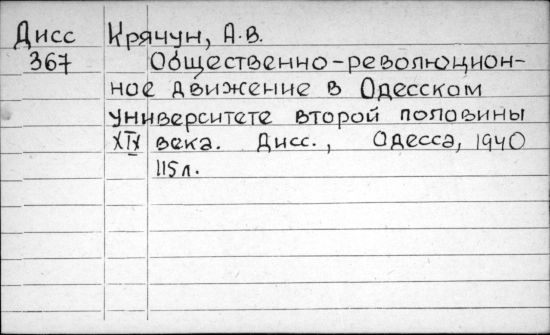 Дисс Крячун, А.В.
367 Общественно-революцион-
ное движение в Одесском
университете второй половины
XIX века. Дисс., Одесса, 1940
115л.